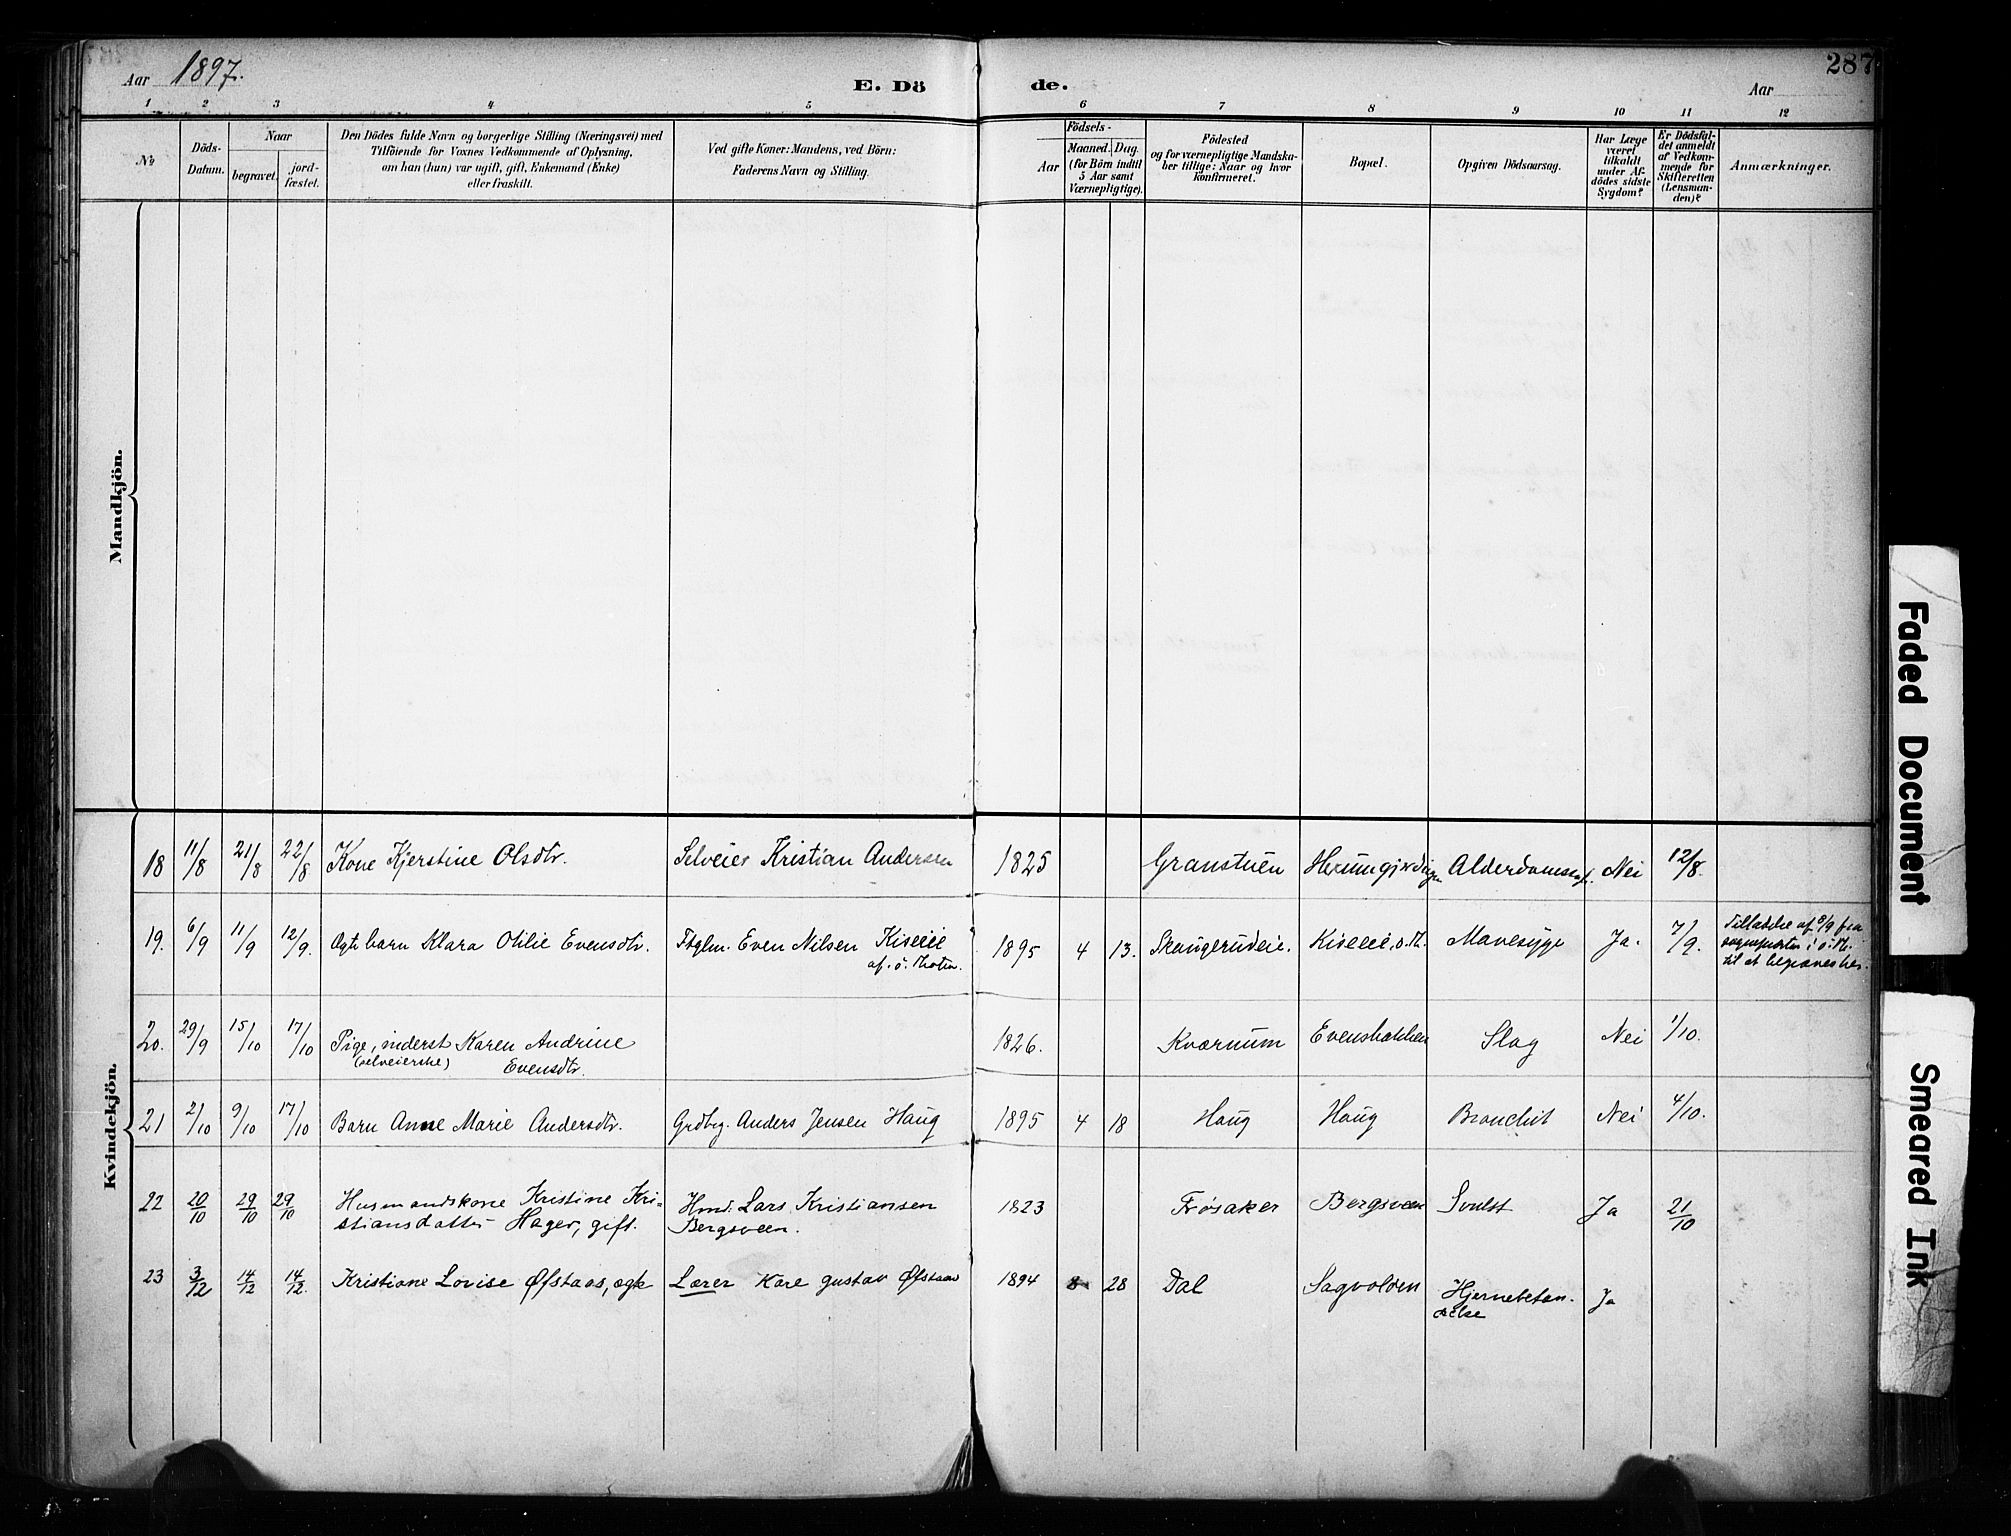 Aar 1897.
E. Dö
de.
Aar
287
1 2 3 4 5 6 7 8 9 10 11 12
No
Döds-
Datum.
Naar
begravet.
jord-
fæstet.
Den Dödes fulde Navn og borgerlige Stilling (Næringsvei) med
Tilföiende for Voxnes Vedkommende af Oplysning,
om han (hun) var ugift, gift, Enkemand (Enke)
eller fraskilt.
Ved gifte Koner: Mandens, ved Börn:
Faderens Navn og Stilling.
Födsels-
Aar
Maaned. Dag.
(for Börn indtil
5 Aar samt
Værnepligtige).
Födested
og for værnepligtige Mandska-
ber tillige: Naar og hvor
konfirmeret.
Bopæl.
Opgiven Dödsaarsag.
Har Læge
været
tilkaldt
under Af-
dödes sidste
Sygdom?
Er Dödsfal-
det anmeldt
af Vedkom-
mende for
Skifteretten
(Lensman-
den)?
Anmærkninger.
Mandkjön.
Kvindekjön.
18 11/8 21/8 22/8 Kone Kjerstine Olsdtr. Selveier Kristian Andersen 1825 Granstuen Alderdomssv. Nei 12/8.
19. 6/9 11/9 12/9. Ægte barn Klara Otilie Evensdtr. Ftglm. Even Nilsen Kiseeie
af ö. Thoten. 1895 4 13. Skaugerudeie. Kiseeie, ö. Th. Mavesyge Ja. 7/9. Tilladelse af 8/9 fra
sogneprsten i ö. Th.
til at begraves her.
20. 29/9 15/10 17/10 Pige, inderst Karen Andrine
(selveierske) Evensdtr. 1826. Kværnum Evensbakken Slag Nei 1/10.
21 2/10 9/10 17/10 Barn Anne Marie Andersdtr. Grdbrg. Anders Jensen Haug 1895 4 18 Haug Haug Bronchit Nei 4/10.
22 20/10 29/10 29/10 Husmandskone Kristine Kri=
stiansdatter Hager, gift. Hmd. Lars Kristiansen
Bergsveen. 1823 Frösaker Bergsveen Svulst Ja 21/10
23 3/12 14/12 14/12. Kristiane Lovise Øfstaas, ægte Lærer Kare Gustav Øfstaas 1894 8 28 Dal Sagvolden Hjernebetæn-
delse Ja
Faded Document
Smeared Ink